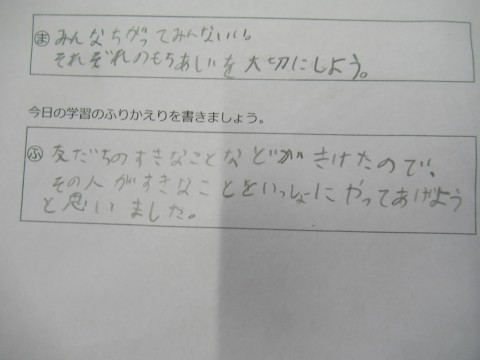 ま みんなちがってみんないい。
それぞれのもちあじを大切にしよう。
今日の学習のふりかえりを書きましょう。
ふ 友だちのすきなことなどがきけたので、
その人がすきなことをいっしょにやってあげよう
と思いました。